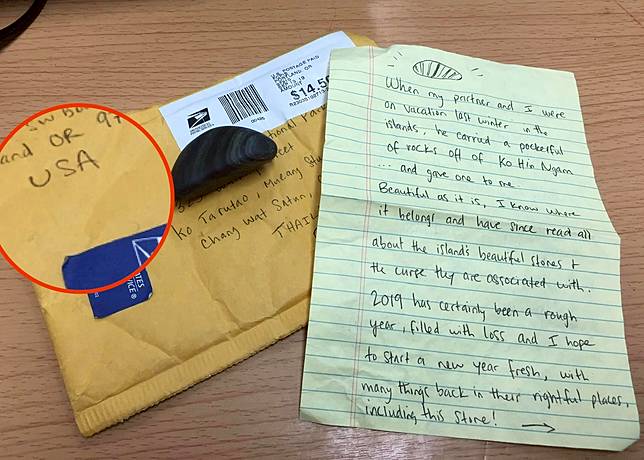 and OR 97
USA
U.S. POSTAGE PAID
AMOUNT
$14.50
Ko Tarutao, Mueang
Chang Wat Satun,
THAIL
When my partner and I were
on vacation last winter in the
islands, he carried a pocketful
of rocks off of Ko Hin Ngam
... and gave one to me.
Beautiful as it is, I know where
it belongs and have since read all
about the island's beautiful stones +
the curse they are associated with.
2019 has certainly been a rough
year, filled with loss and I hope
to start a new year fresh, with
many things back in their rightful places,
including this stone!